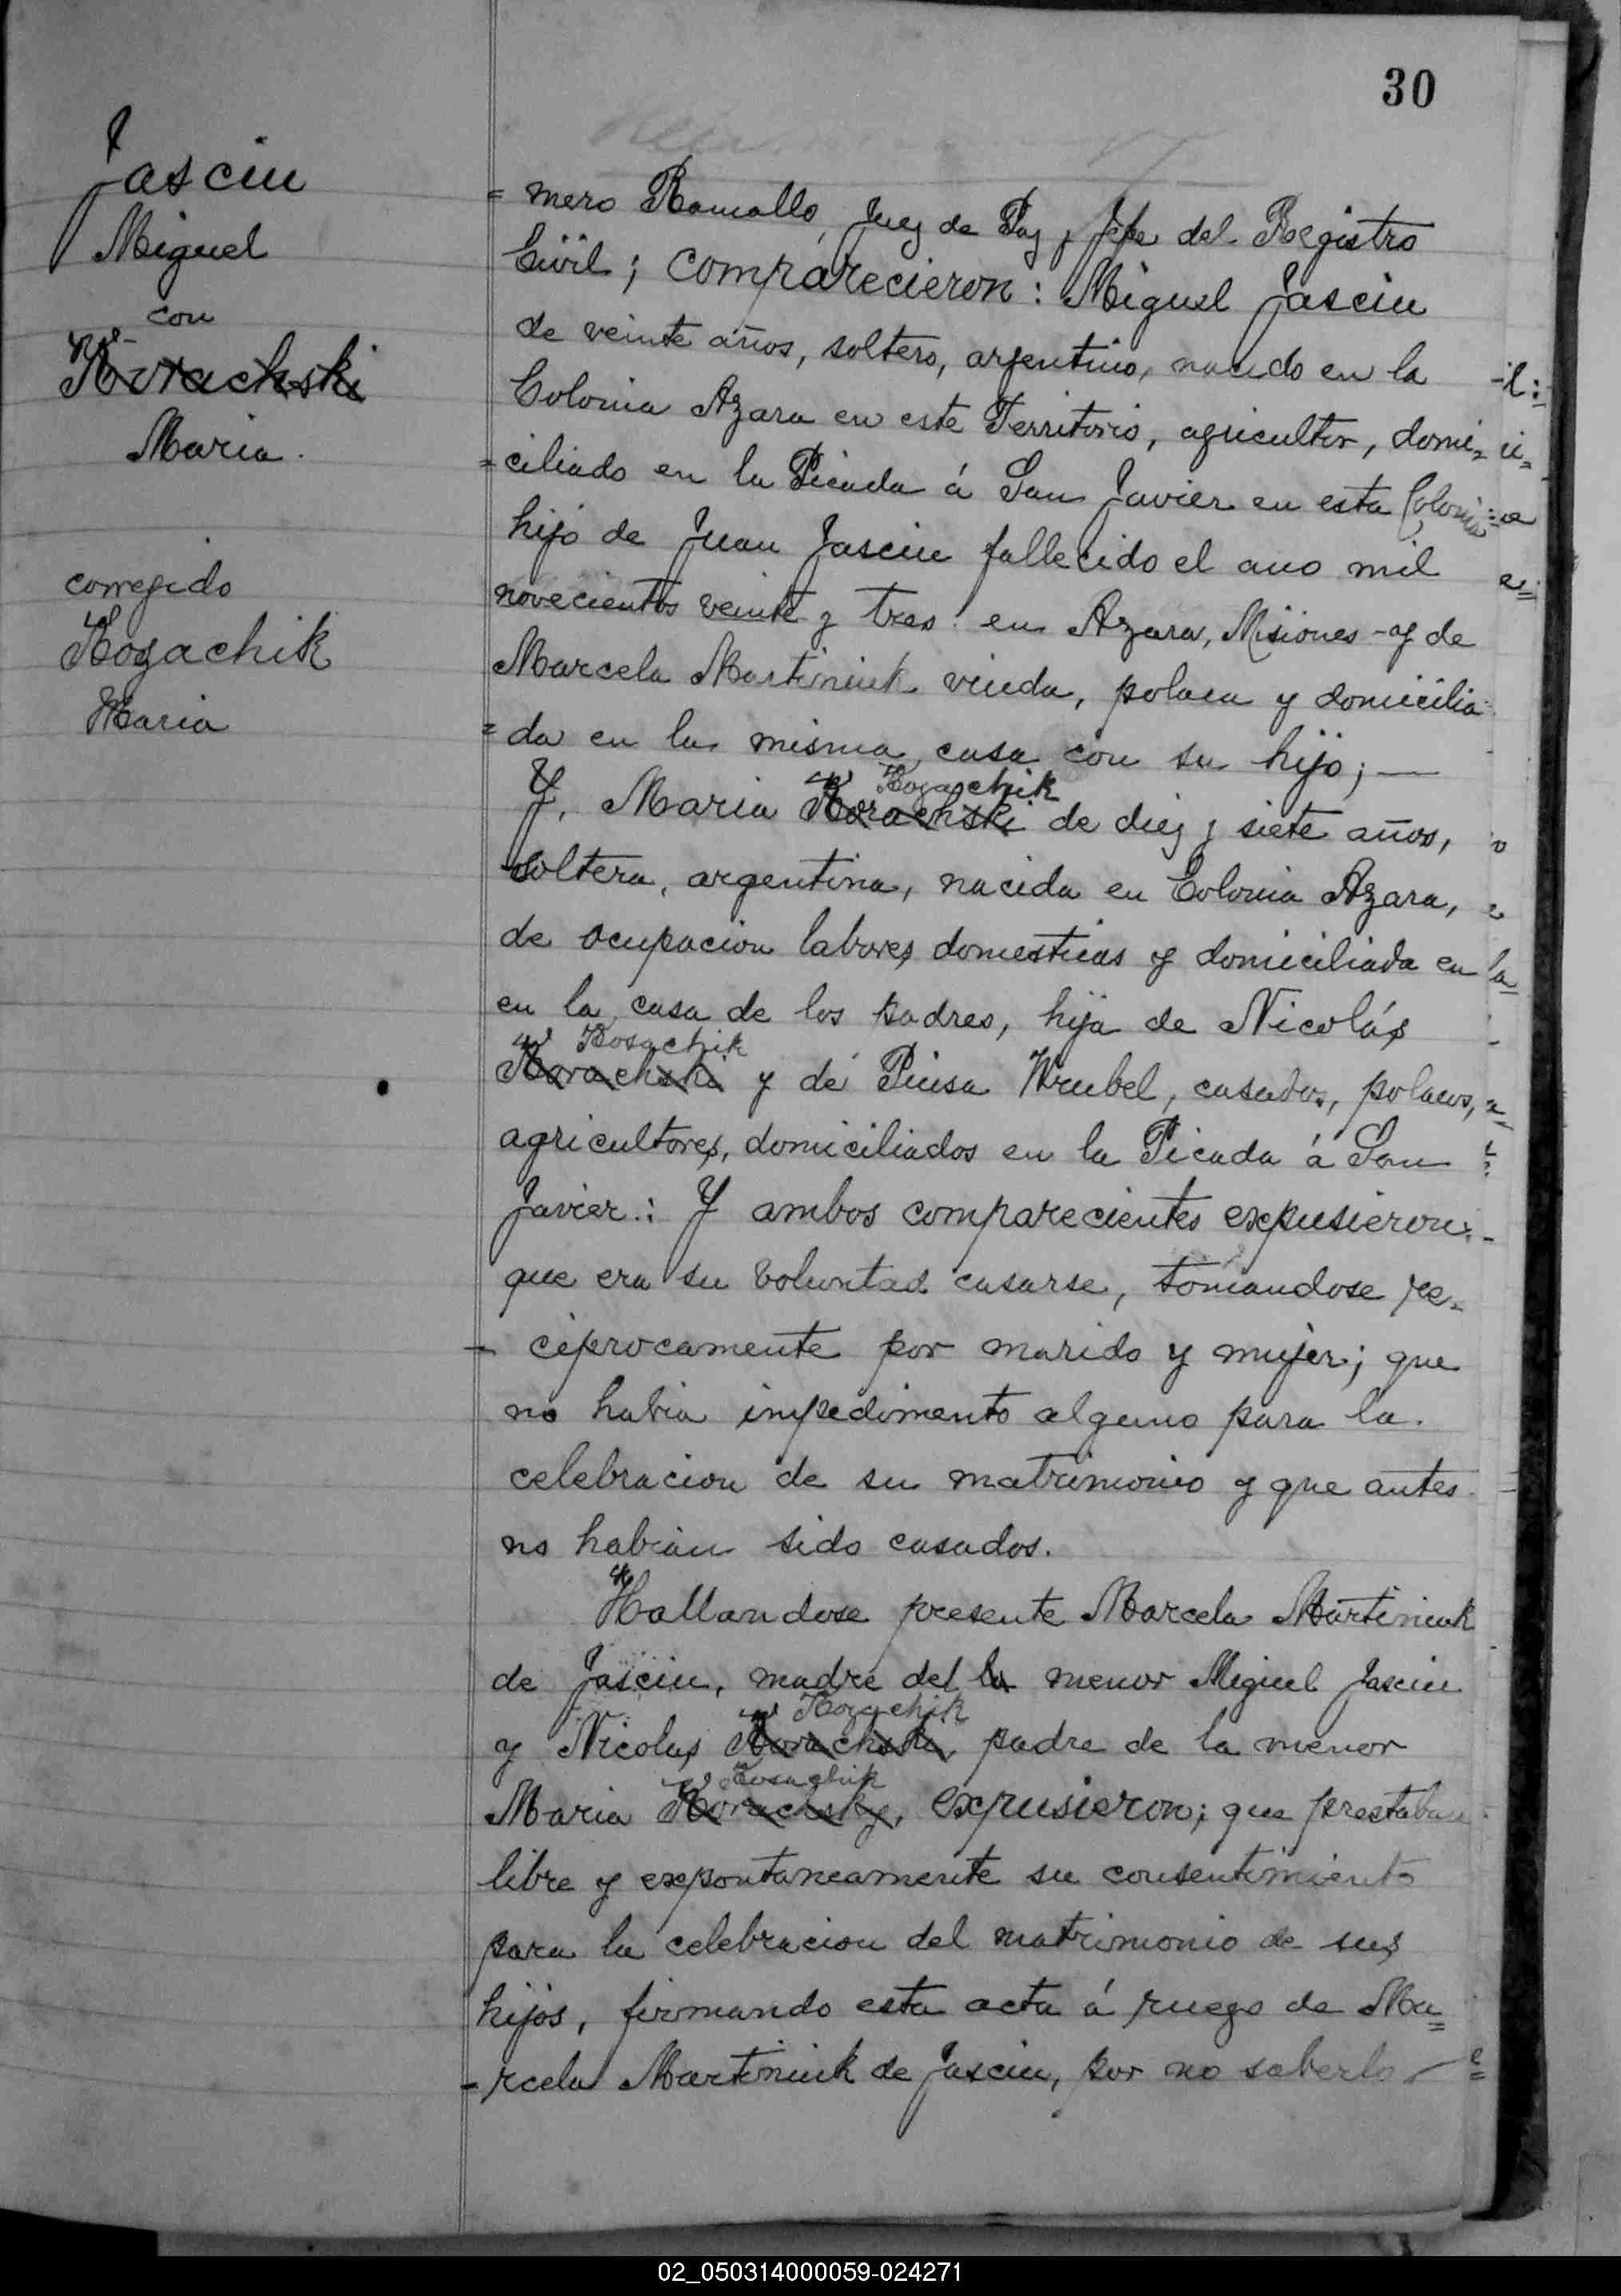 30
Jasciu
Miguel
con
Korachski
Maria.
corregido
Kozachik
Maria
= mero Ramallo, Juez de Paz y Jefe del Registro
Civil; comparecieron: Miguel Jasciu
de veinte años, soltero, argentino, nacido en la
Colonia Azara en este Territorio, agricultor, domi=
=ciliado en la Picada á San Javier en esta Colonia
hijo de Juan Jasciu fallecido el ano mil
novecientos veinte y tres en Azara, Misiones - y de
Marcela Martiniuk viuda, polaca y domicilia
=da en la misma casa con su hijo; —
Kozachik
Y, Maria Korachski de diez y siete años,
soltera, argentina, nacida en Colonia Azara,
de ocupacion labores domesticas y domiciliada en la
en la casa de los padres, hija de Nicolás
Kosachik
Korachski y de Wrubel, casados, polacos,
agricultores, domiciliados en la Picada á San
Javier.: Y ambos comparecientes expusieron:
que era su voluntad casarse, tomandose re-
- ciprocamente por marido y mujer; que
no habia impedimento alguno para la
celebracion de su matrimonio y que antes
no habian sido casados.
Hallandose presente Marcela Martiniuk
de Jasciu, madre del la menor Miguel Jasciu
Kozachik
y Nicolas Korachski, padre de la menor
Kosachik
Maria Korachsky, expusieron; que prestaban
libre y expontaneamente su consentimiento
para la celebracion del matrimonio de sus
hijos, firmando esta acta á ruego de Ma=
-rcela Martiniuk de Jasciu, por no saberlo
02_050314000059-024271